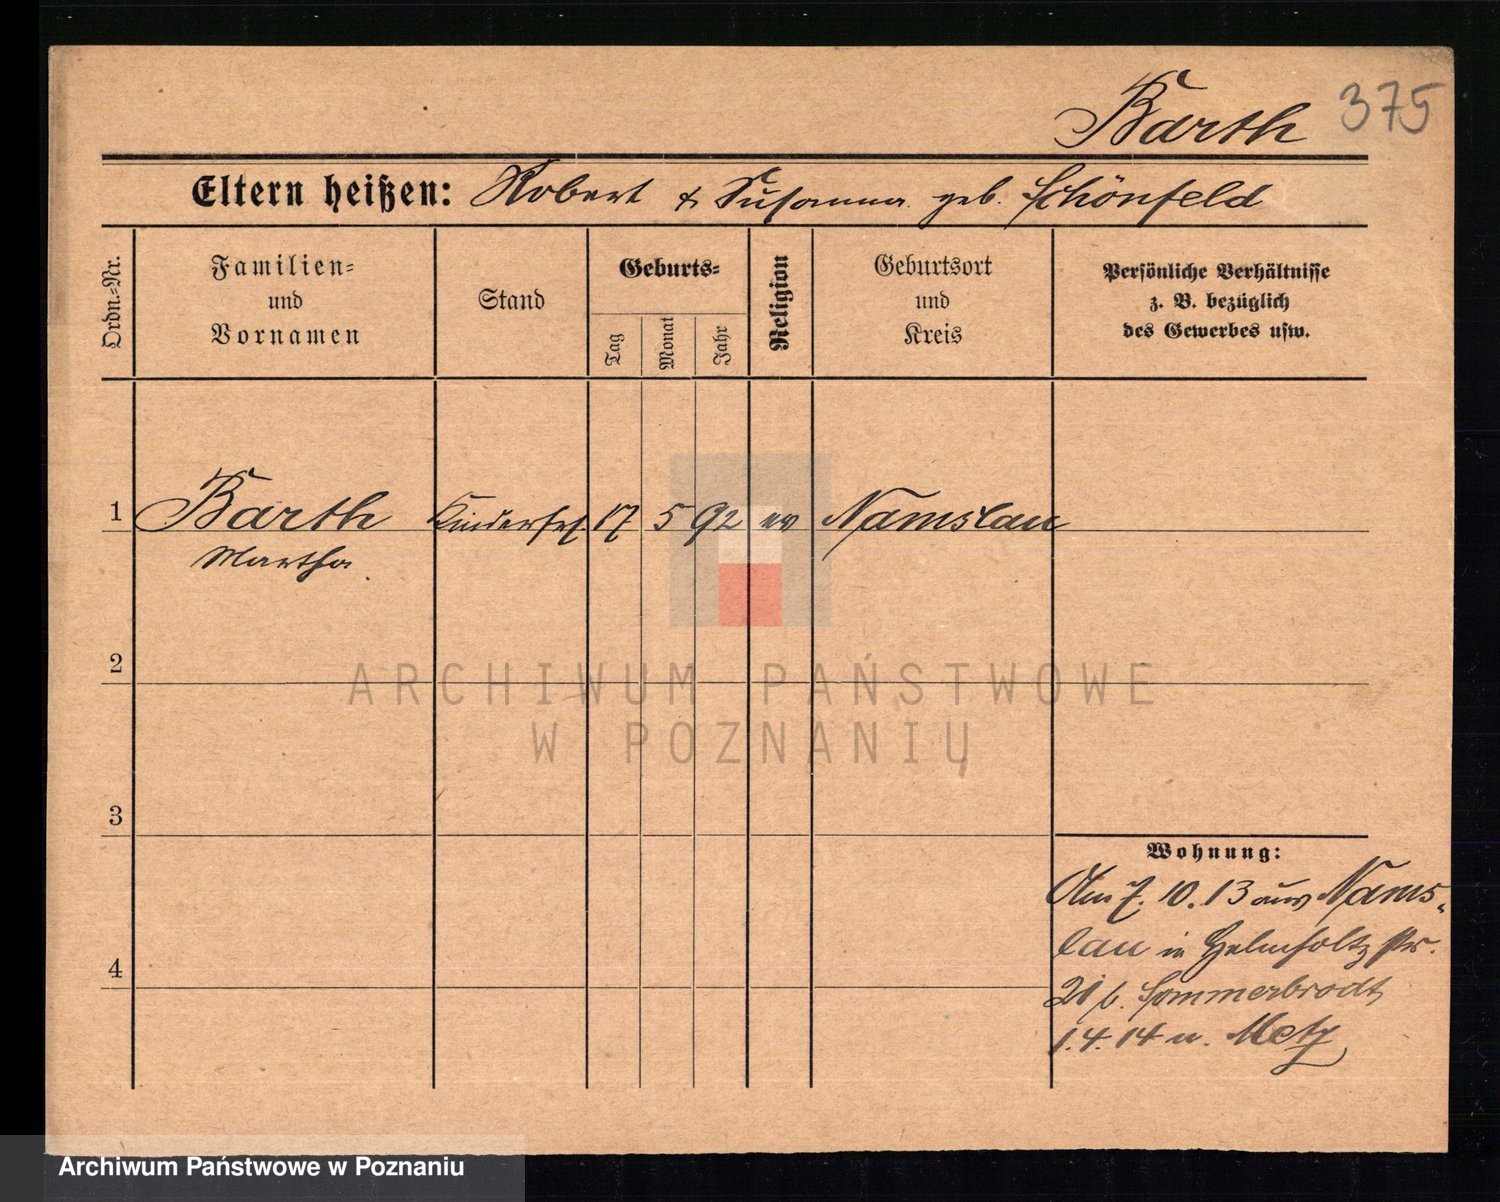 Barth 375
Eltern heißen: Robert & Susanna geb. Schönfeld
Ordn.=Nr.
Familien=
und
Vornamen
Stand
Geburts=
Tag
Monat
Jahr
Religion
Geburtsort
und
Kreis
Persönliche Verhältnisse
z. B. bezüglich
des Gewerbes usw.
1 Barth 17 5 92 ev Namslau
Martha
2
ARCHIWUM PAŃSTWOWE
W POZNANIU
3
Wohnung:
Am 7. 10. 13 aus Nams-
lau in Helmholtz str.
4
21 b. Sommerbrodt
1. 4. 14 n. Metz
Archiwum Państwowe w Poznaniu